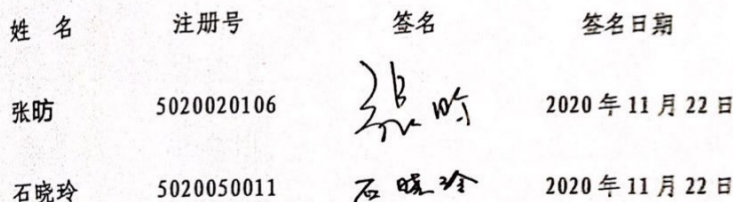 姓 名 注册号 签名 签名日期
张昉 5020020106 张昉 2020 年 11 月 22 日
石晓玲 5020050011 石晓玲 2020 年 11 月 22 日